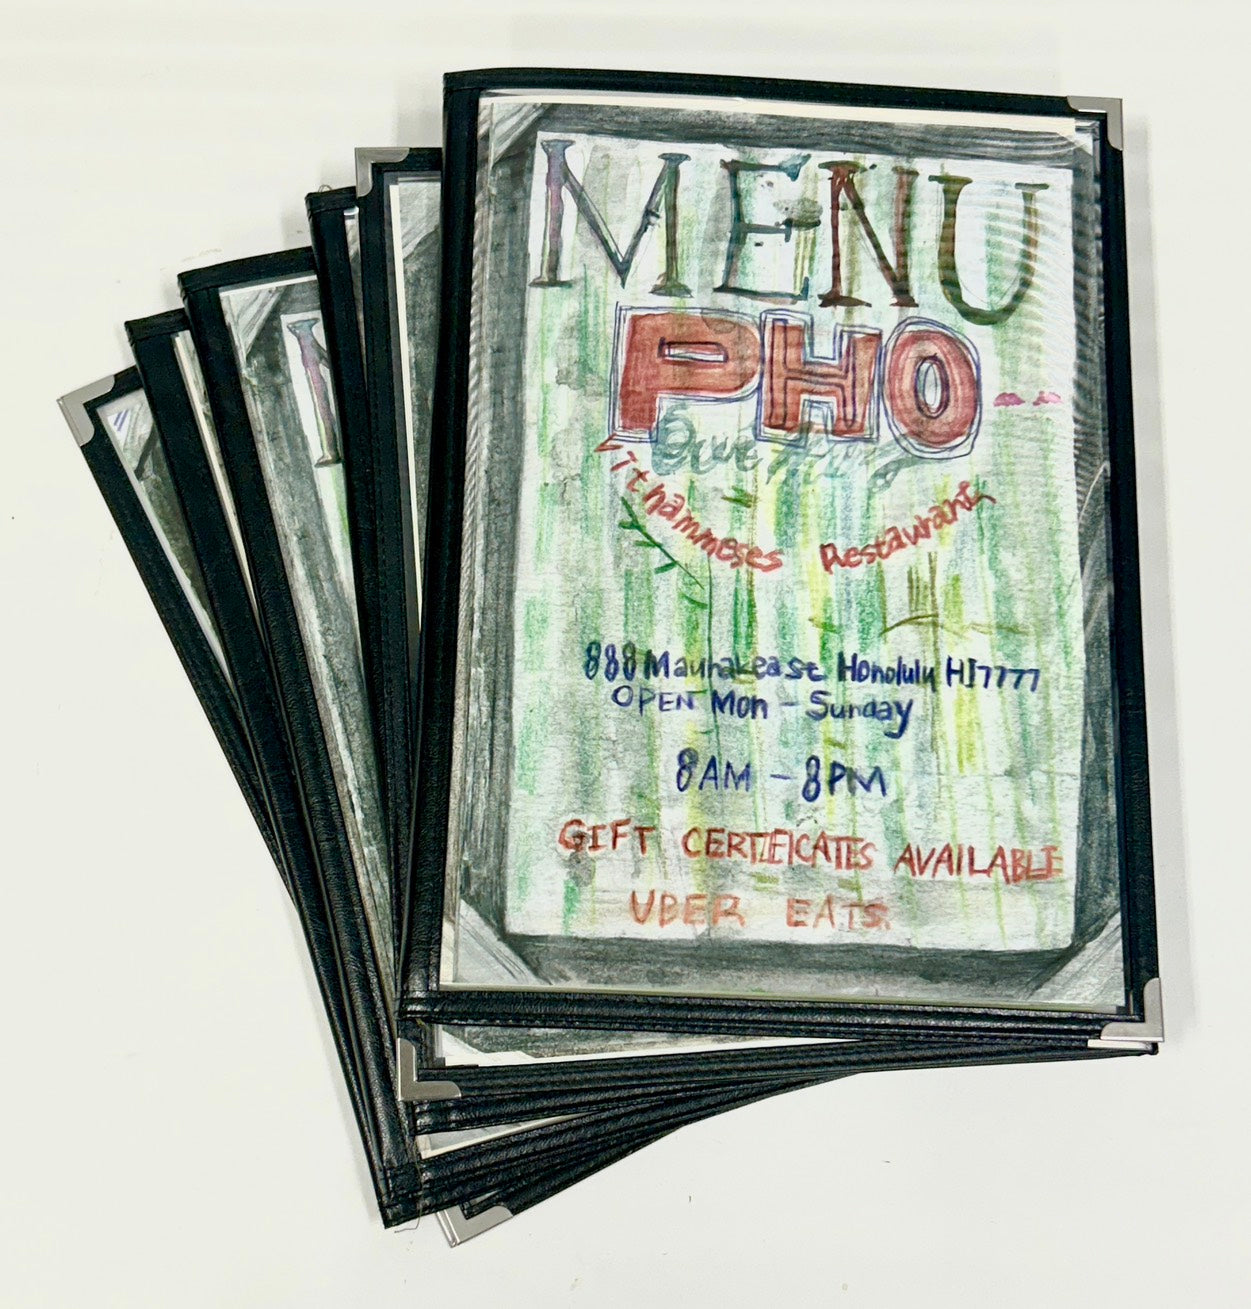 MENU
PHO
Vithammeses Restaurant
888 Maunakea st Honolulu HI 7777
OPEN Mon - Sunday
8AM - 8PM
GIFT CERTIFICATES AVAILABLE
UBER EATS